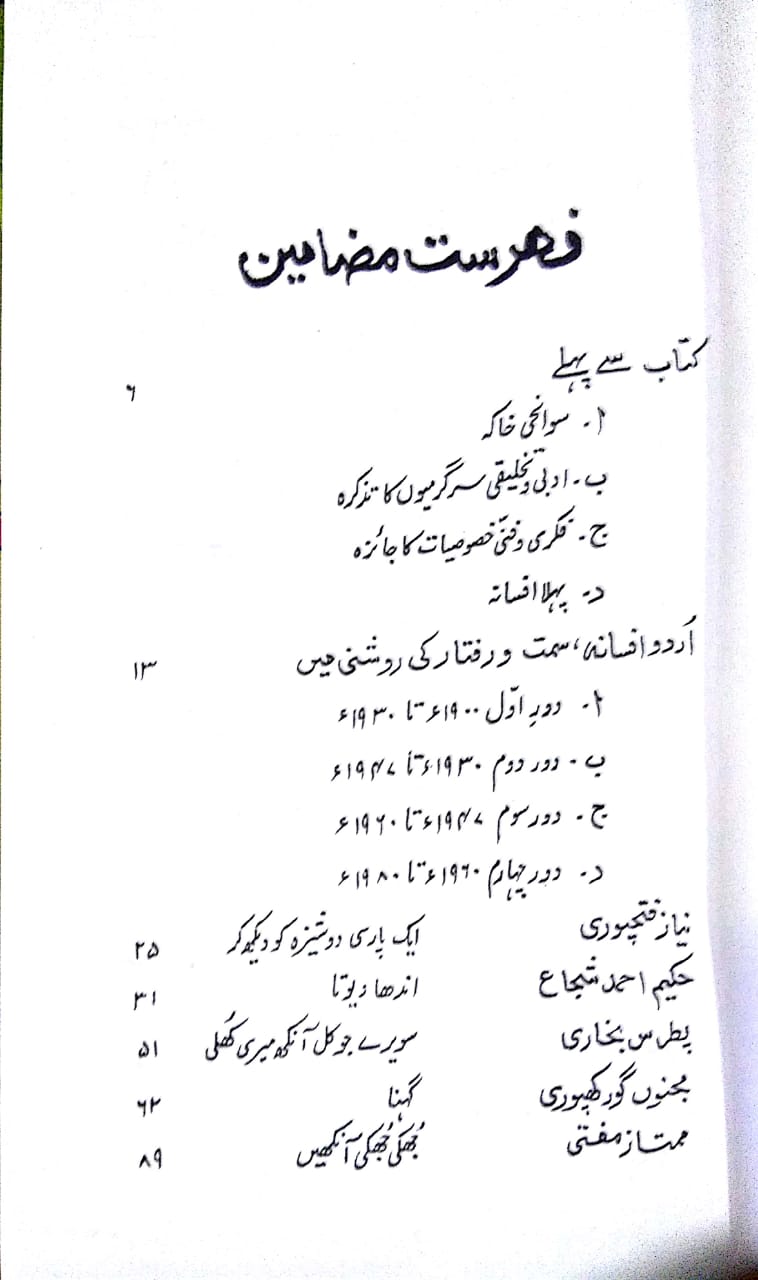 فہرست مضامین
کتاب سے پہلے ۶
ا۔ سوانحی خاکہ
ب۔ ادبی و تخلیقی سرگرمیوں کا تذکرہ
ج۔ فکری و فنّی خصوصیات کا جائزہ
د۔ پہلا افسانہ
اُردو افسانہ، سمت و رفتار کی روشنی میں ۱۳
ا۔ دورِ اوّل ۱۹۰۰ء تا ۱۹۳۰ء
ب۔ دور دوم ۱۹۳۰ء تا ۱۹۴۷ء
ج۔ دور سوم ۱۹۴۷ء تا ۱۹۶۰ء
د۔ دور چہارم ۱۹۶۰ء تا ۱۹۸۰ء
نیاز فتحپوری ایک پارسی دوشیزہ کو دیکھ کر ۲۵
حکیم احمد شجاع اندھا دیوتا ۳۱
پطرس بخاری سویرے جو کل آنکھ میری کھُلی ۵۱
مجنوں گورکھپوری گہنا ۶۲
ممتاز مفتی جُھکی جُھکی آنکھیں ۸۹